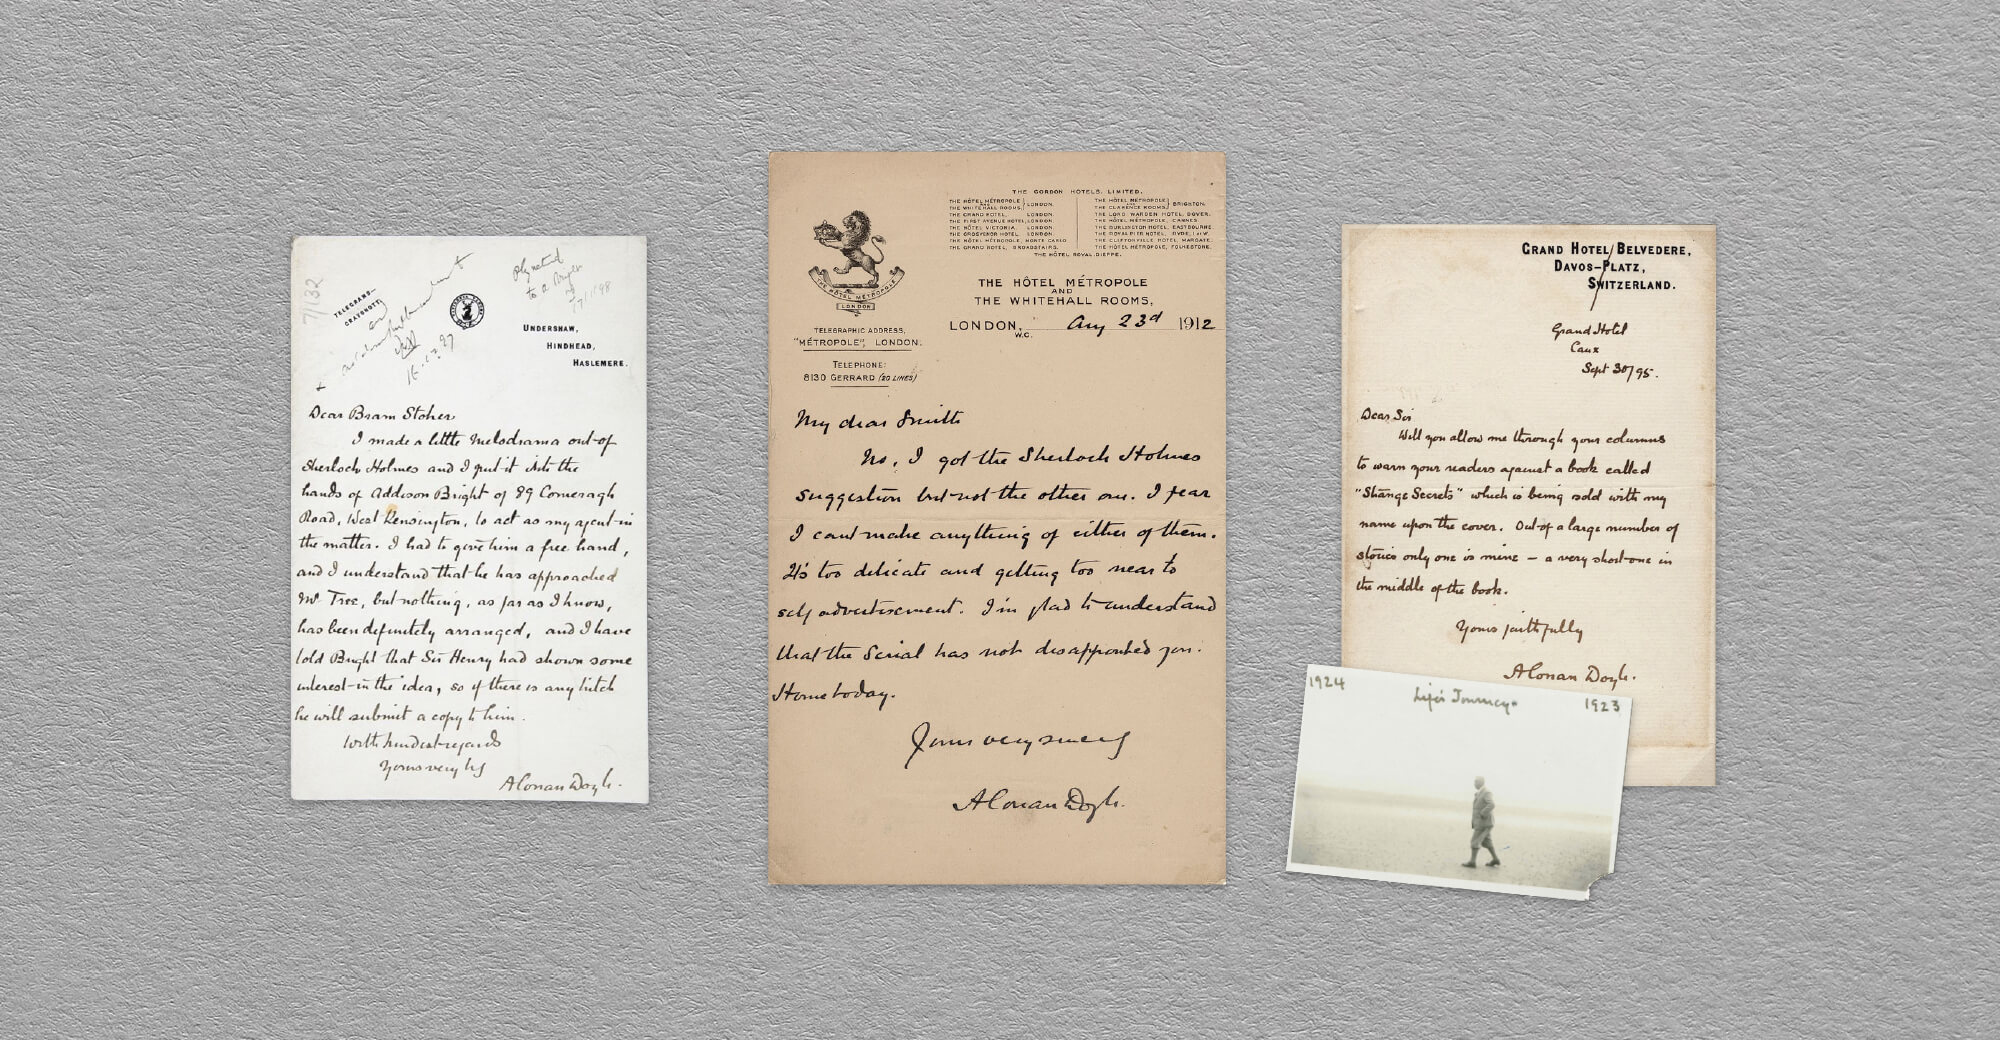 7/132
TELEGRAMS—
CRAYSHOTT.
and
16.12.97
Play returned
to A Bright
17/1/98
UNDERSHAW,
HINDHEAD,
HASLEMERE.
Dear Bram Stoker
I made a little Melodrama out of
Sherlock Holmes and I put it into the
hands of Addison Bright of 89 Comeragh
Road, West Kensington, to act as my agent in
the matter. I had to give him a free hand,
and I understand that he has approached
Mr Tree, but nothing, as far as I know,
has been definitely arranged, and I have
told Bright that Sir Henry had shown some
interest in the idea, so if there is any hitch
he will submit a copy to him.
With kindest regards
Yours very try
A Conan Doyle.
THE GORDON HOTELS, LIMITED.
THE HÔTEL MÉTROPOLE
AND
THE WHITEHALL ROOMS, } LONDON.
THE GRAND HOTEL, LONDON.
THE FIRST AVENUE HOTEL, LONDON.
THE HÔTEL VICTORIA, LONDON.
THE GROSVENOR HOTEL LONDON.
THE HÔTEL MÉTROPOLE, MONTE CARLO
THE GRAND HOTEL, BROADSTAIRS.
THE HÔTEL MÉTROPOLE
AND
THE CLARENCE ROOMS, } BRIGHTON.
THE LORD WARDEN HOTEL, DOVER.
THE HÔTEL MÉTROPOLE, CANNES.
THE BURLINGTON HOTEL, EASTBOURNE
THE ROYAL PIER HOTEL, RYDE, I of W.
THE CLIFTONVILLE HOTEL, MARGATE.
THE HÔTEL MÉTROPOLE, FOLKESTONE.
THE HÔTEL ROYAL, DIEPPE.
THE HÔTEL MÉTROPOLE
LONDON
THE HÔTEL MÉTROPOLE
AND
THE WHITEHALL ROOMS,
LONDON, W.C. Aug 23d 1912
TELEGRAPHIC ADDRESS,
"MÉTROPOLE", LONDON.
TELEPHONE:
8130 GERRARD (20 LINES)
My dear Smith
No, I got the Sherlock Holmes
suggestion but not the other one. I fear
I cant make anything of either of them.
It's too delicate and getting too near to
self advertisement. I'm glad to understand
that the Serial has not disappointed you.
Home today.
Yours very sincerely
A Conan Doyle.
GRAND HOTEL BELVEDERE,
DAVOS-PLATZ,
SWITZERLAND.
Grand Hotel
Caux
Sept 30/95.
Dear Sir
Will you allow me through your columns
to warn your readers against a book called
"Strange Secrets" which is being sold with my
name upon the cover. Out of a large number of
stories only one is mine — a very short one in
the middle of the book.
Yours faithfully
A Conan Doyle.
1924 Life's Journey 1923